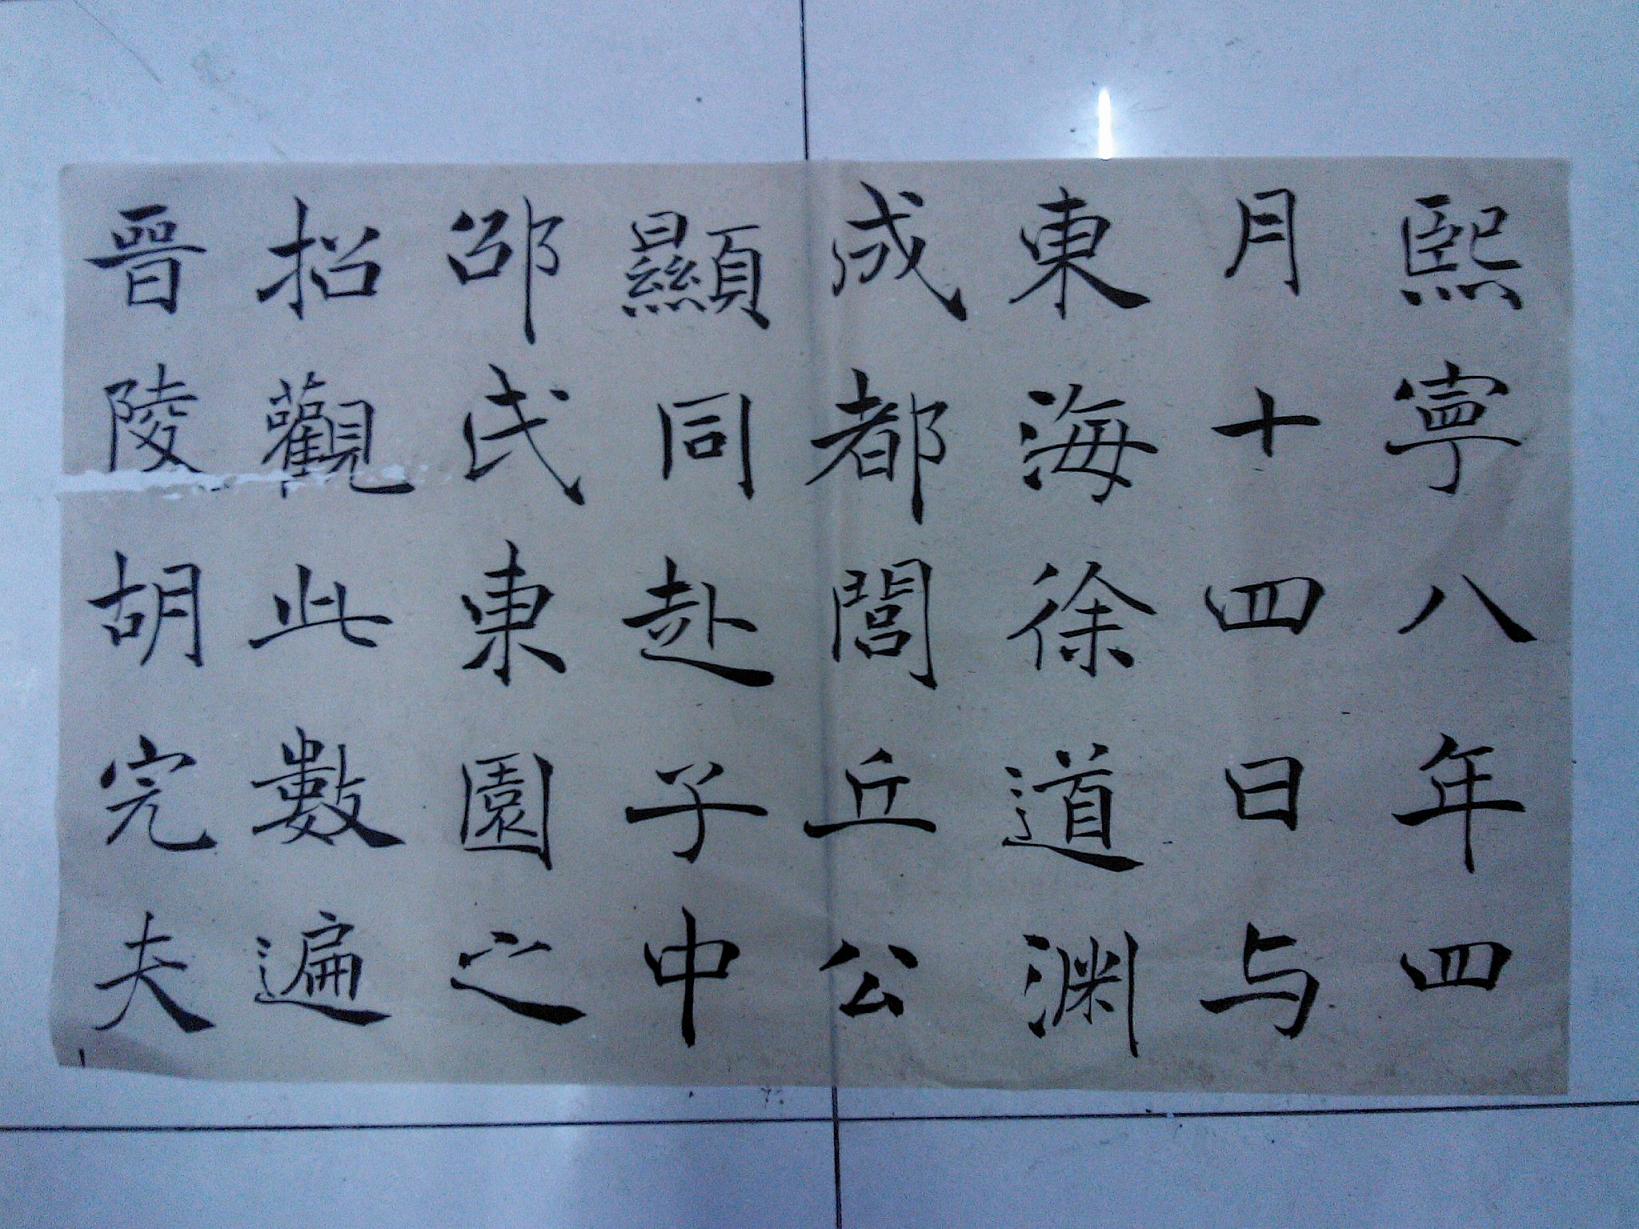 熙寧八年四
月十四日与
東海徐道渊
成都閭丘公
顯同赴子中
邵氏東園之
招觀此數遍
晉陵胡完夫